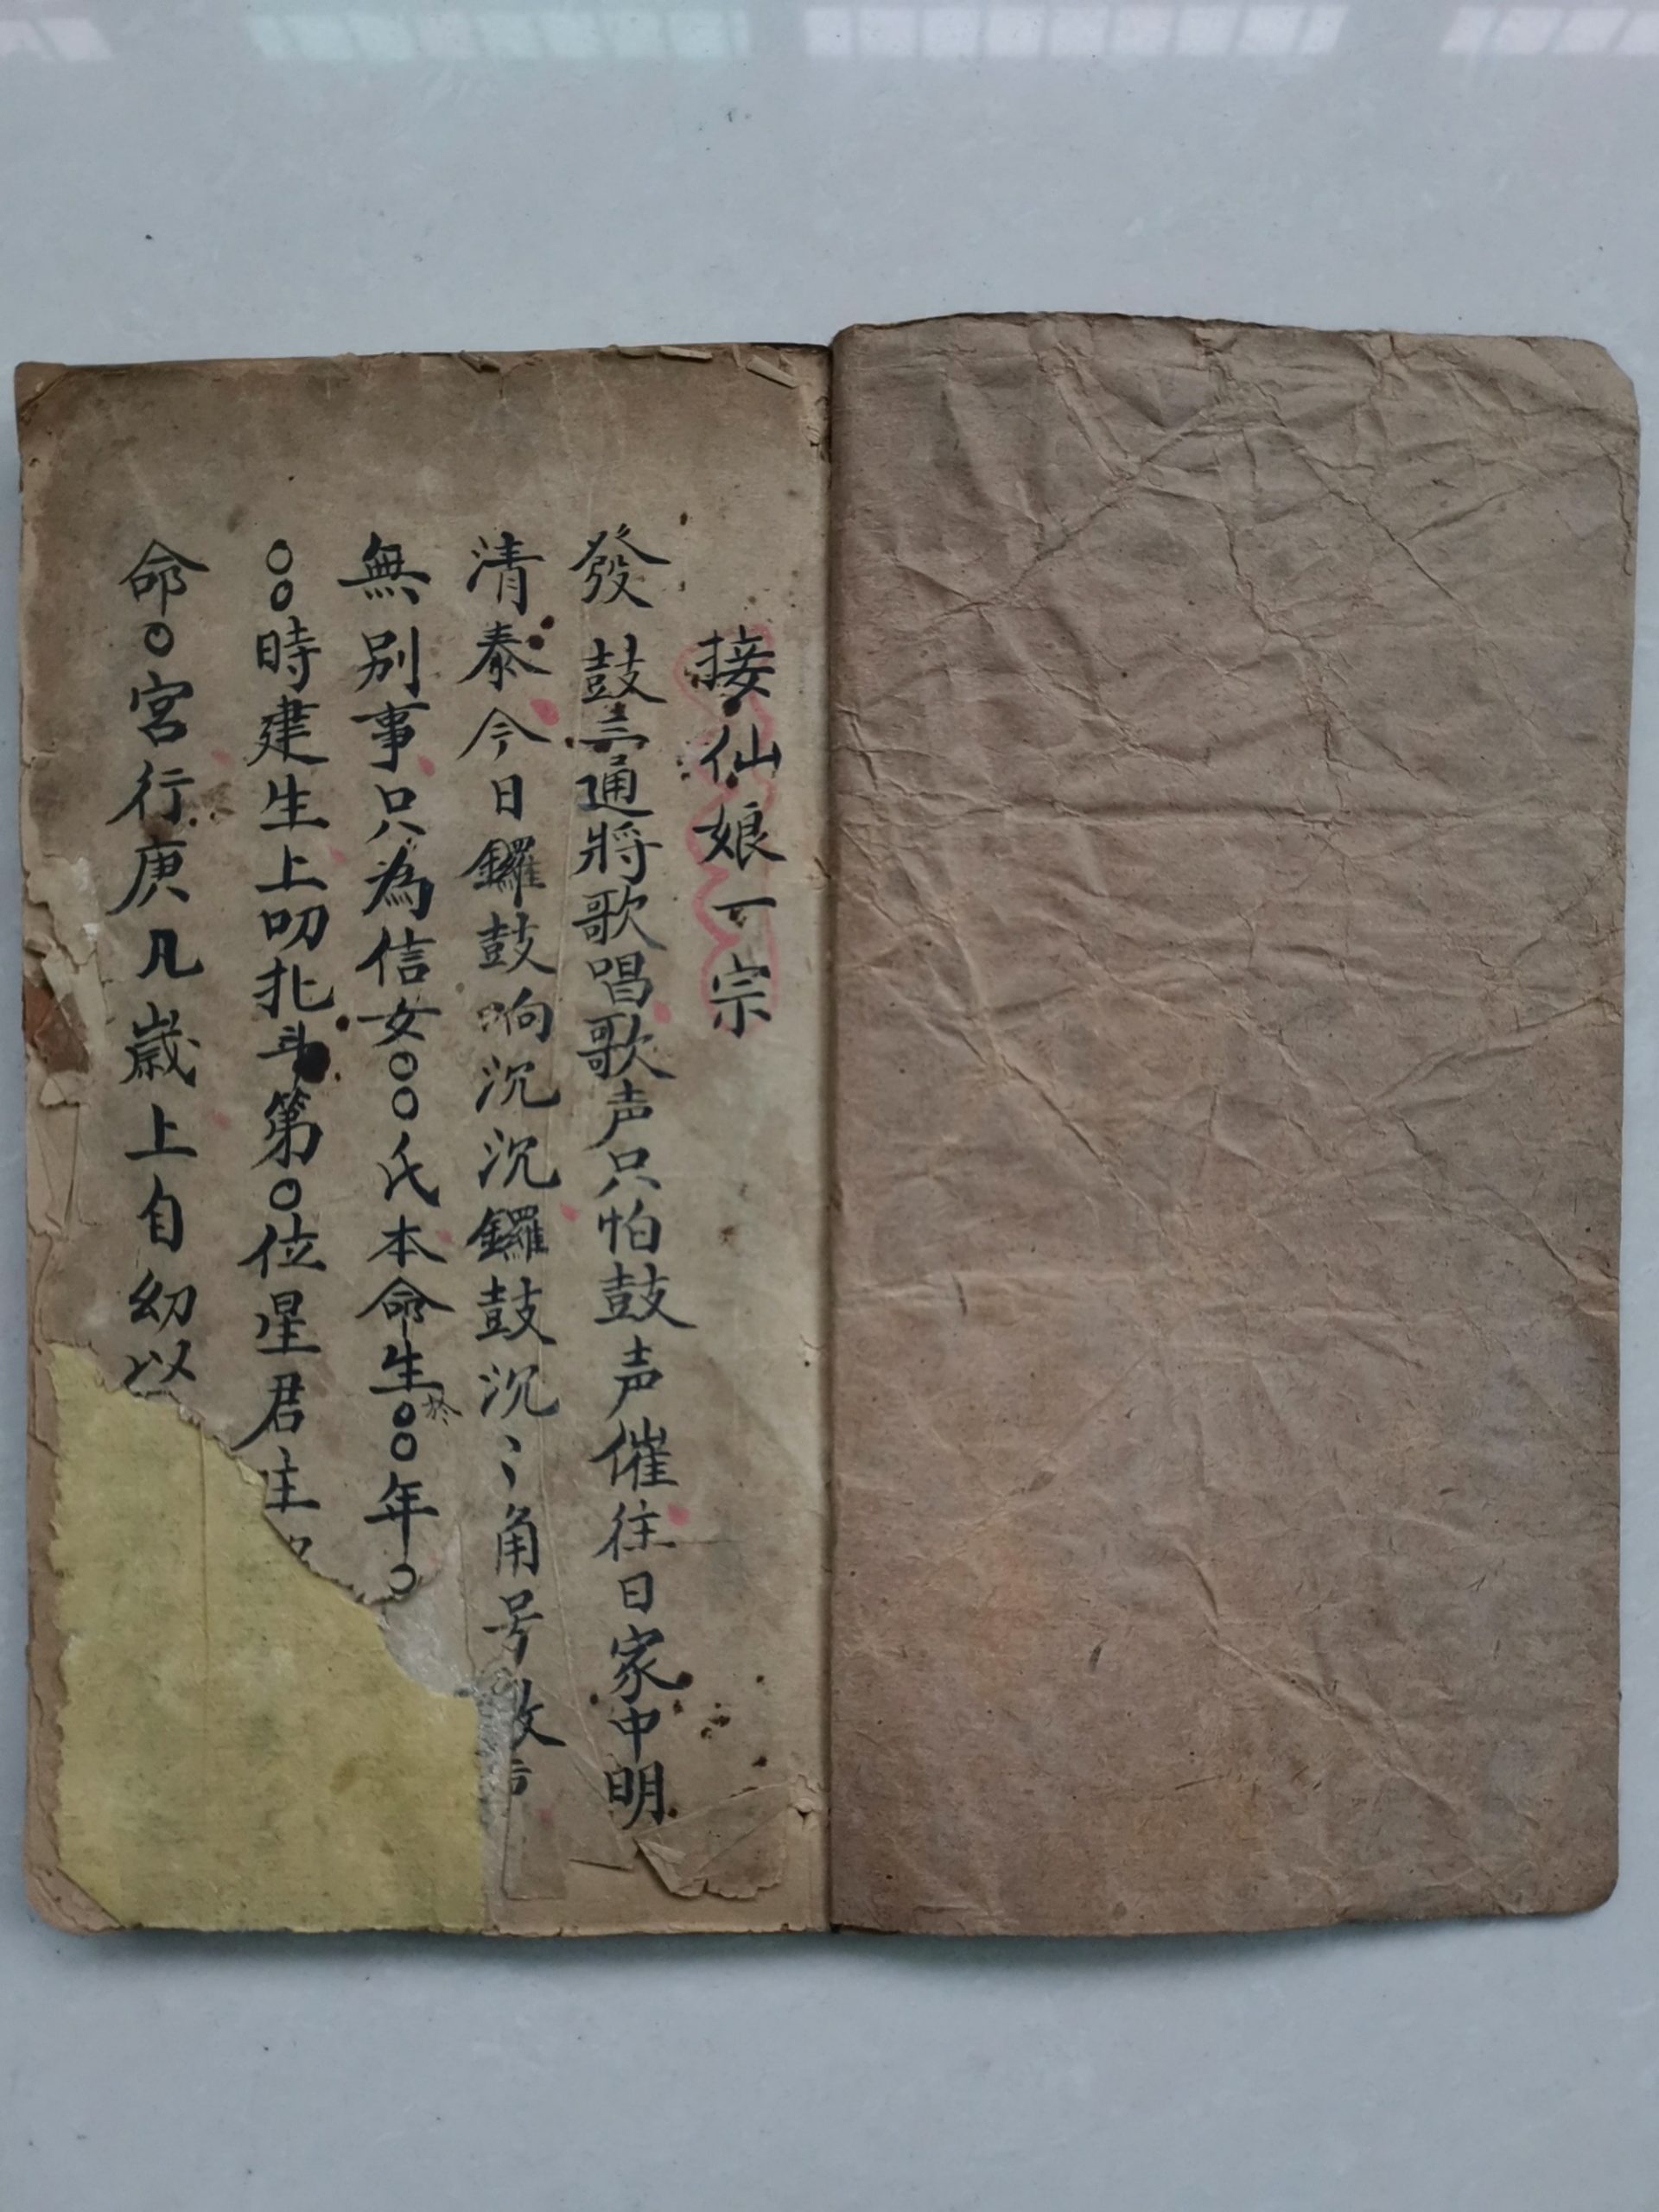 接仙娘一宗
發鼓三通將歌唱歌声只怕鼓声催往日家中明
清泰今日鑼鼓响沉沉鑼鼓沉〻角号
無別事只為信女〇〇氏本命生於〇〇年〇
〇〇時建生上叨北斗第〇位星君主
命〇宮行庚几歲上自幼以